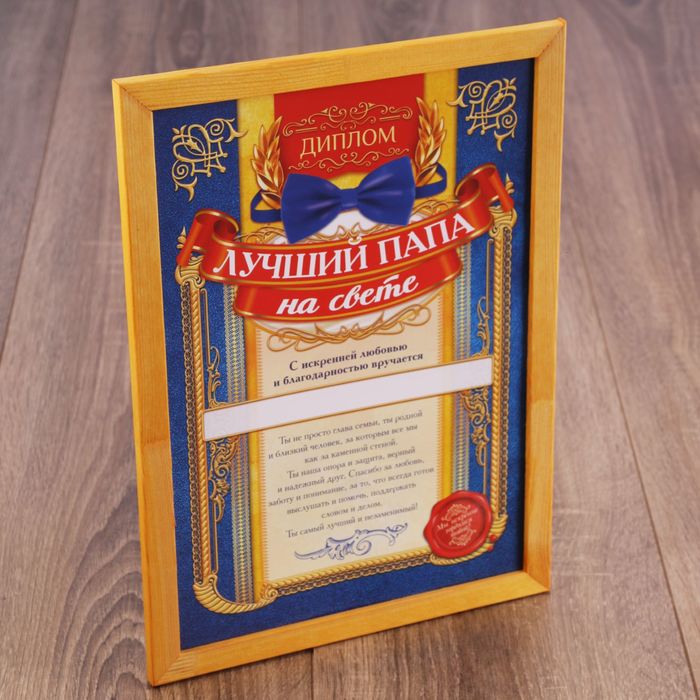 ДИПЛОМ
ЛУЧШИЙ ПАПА
на свете
С искренней любовью
и благодарностью вручается
Ты не просто глава семьи, ты родной
и близкий человек, за которым все мы
как за каменной стеной.
Ты наша опора и защита, верный
и надежный друг. Спасибо за любовь,
заботу и понимание, за то, что всегда готов
выслушать и помочь, поддержать
словом и делом.
Ты самый лучший и незаменимый!
Мы искренне
гордимся
тобой!